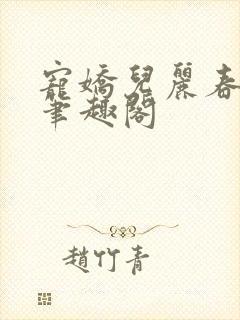 寵嬌兒麗春
筆趣閣
趙竹青